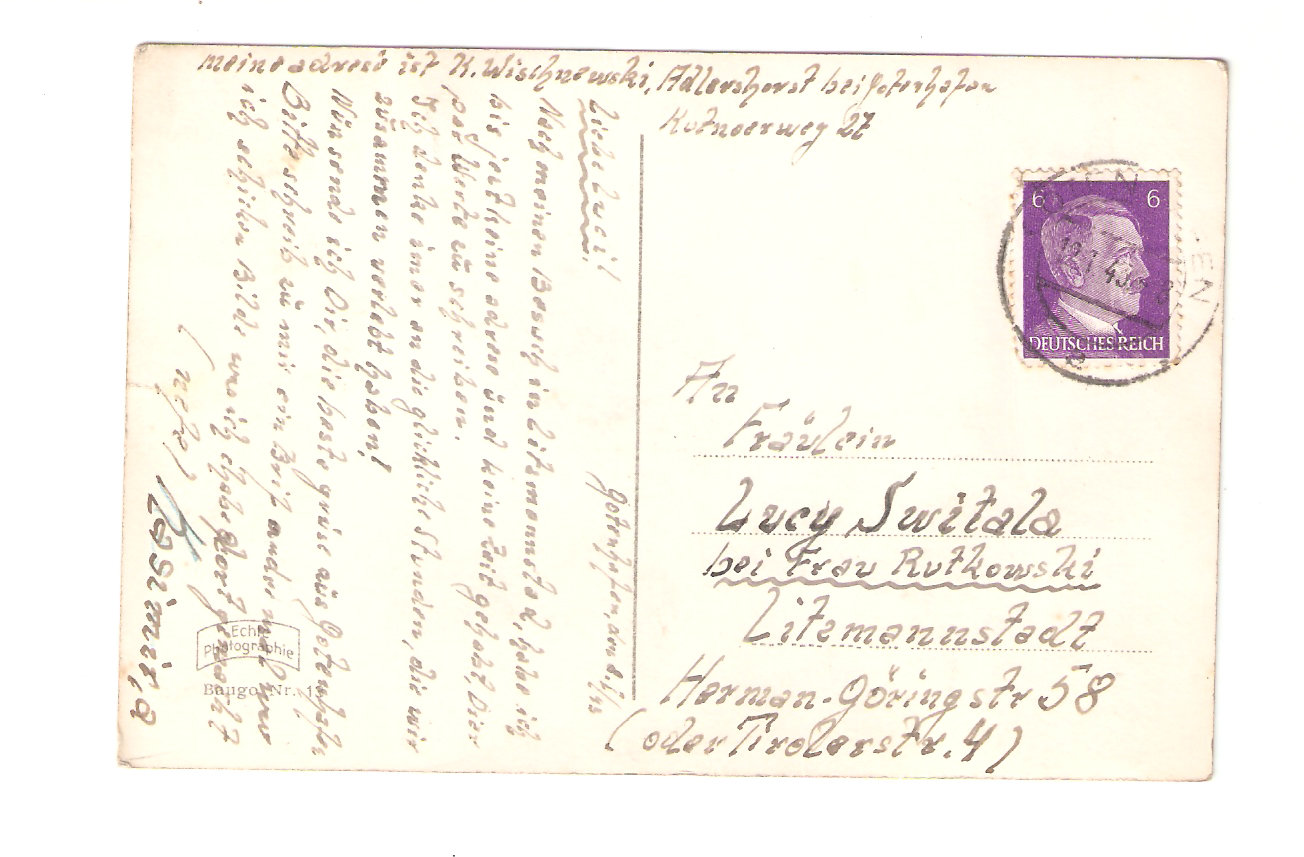 meine adrese ist K. Wischnewski, Adlershorst bei Gotenhafen
Kotnoerweg 27
Gotenhafen, den 8.
Liebe Luci!
Nach meinen Besuch in Litzmannstad, habe ich
bis jezt keine adrese und keine Zeit gehabt, Dier
par Werte zu schreiben.
Ich denke imer an die glückliche Stunden, die wir
zusammen verlebt haben!
Nun sende ich Dir, die beste grüse aus Gotenhafen
Bitte schreib zu mir ein Brif und
ich schicken Bilde was ich habe dort gemacht
6 6
DEUTSCHES REICH
An
Fräulein
Lucy Switala
bei Frau Rutkowski
Litzmannstadt
Herman-Göringstr 58
(oder Tirolerstr. 4)
Echte
Photographie
Baugo Nr. 13